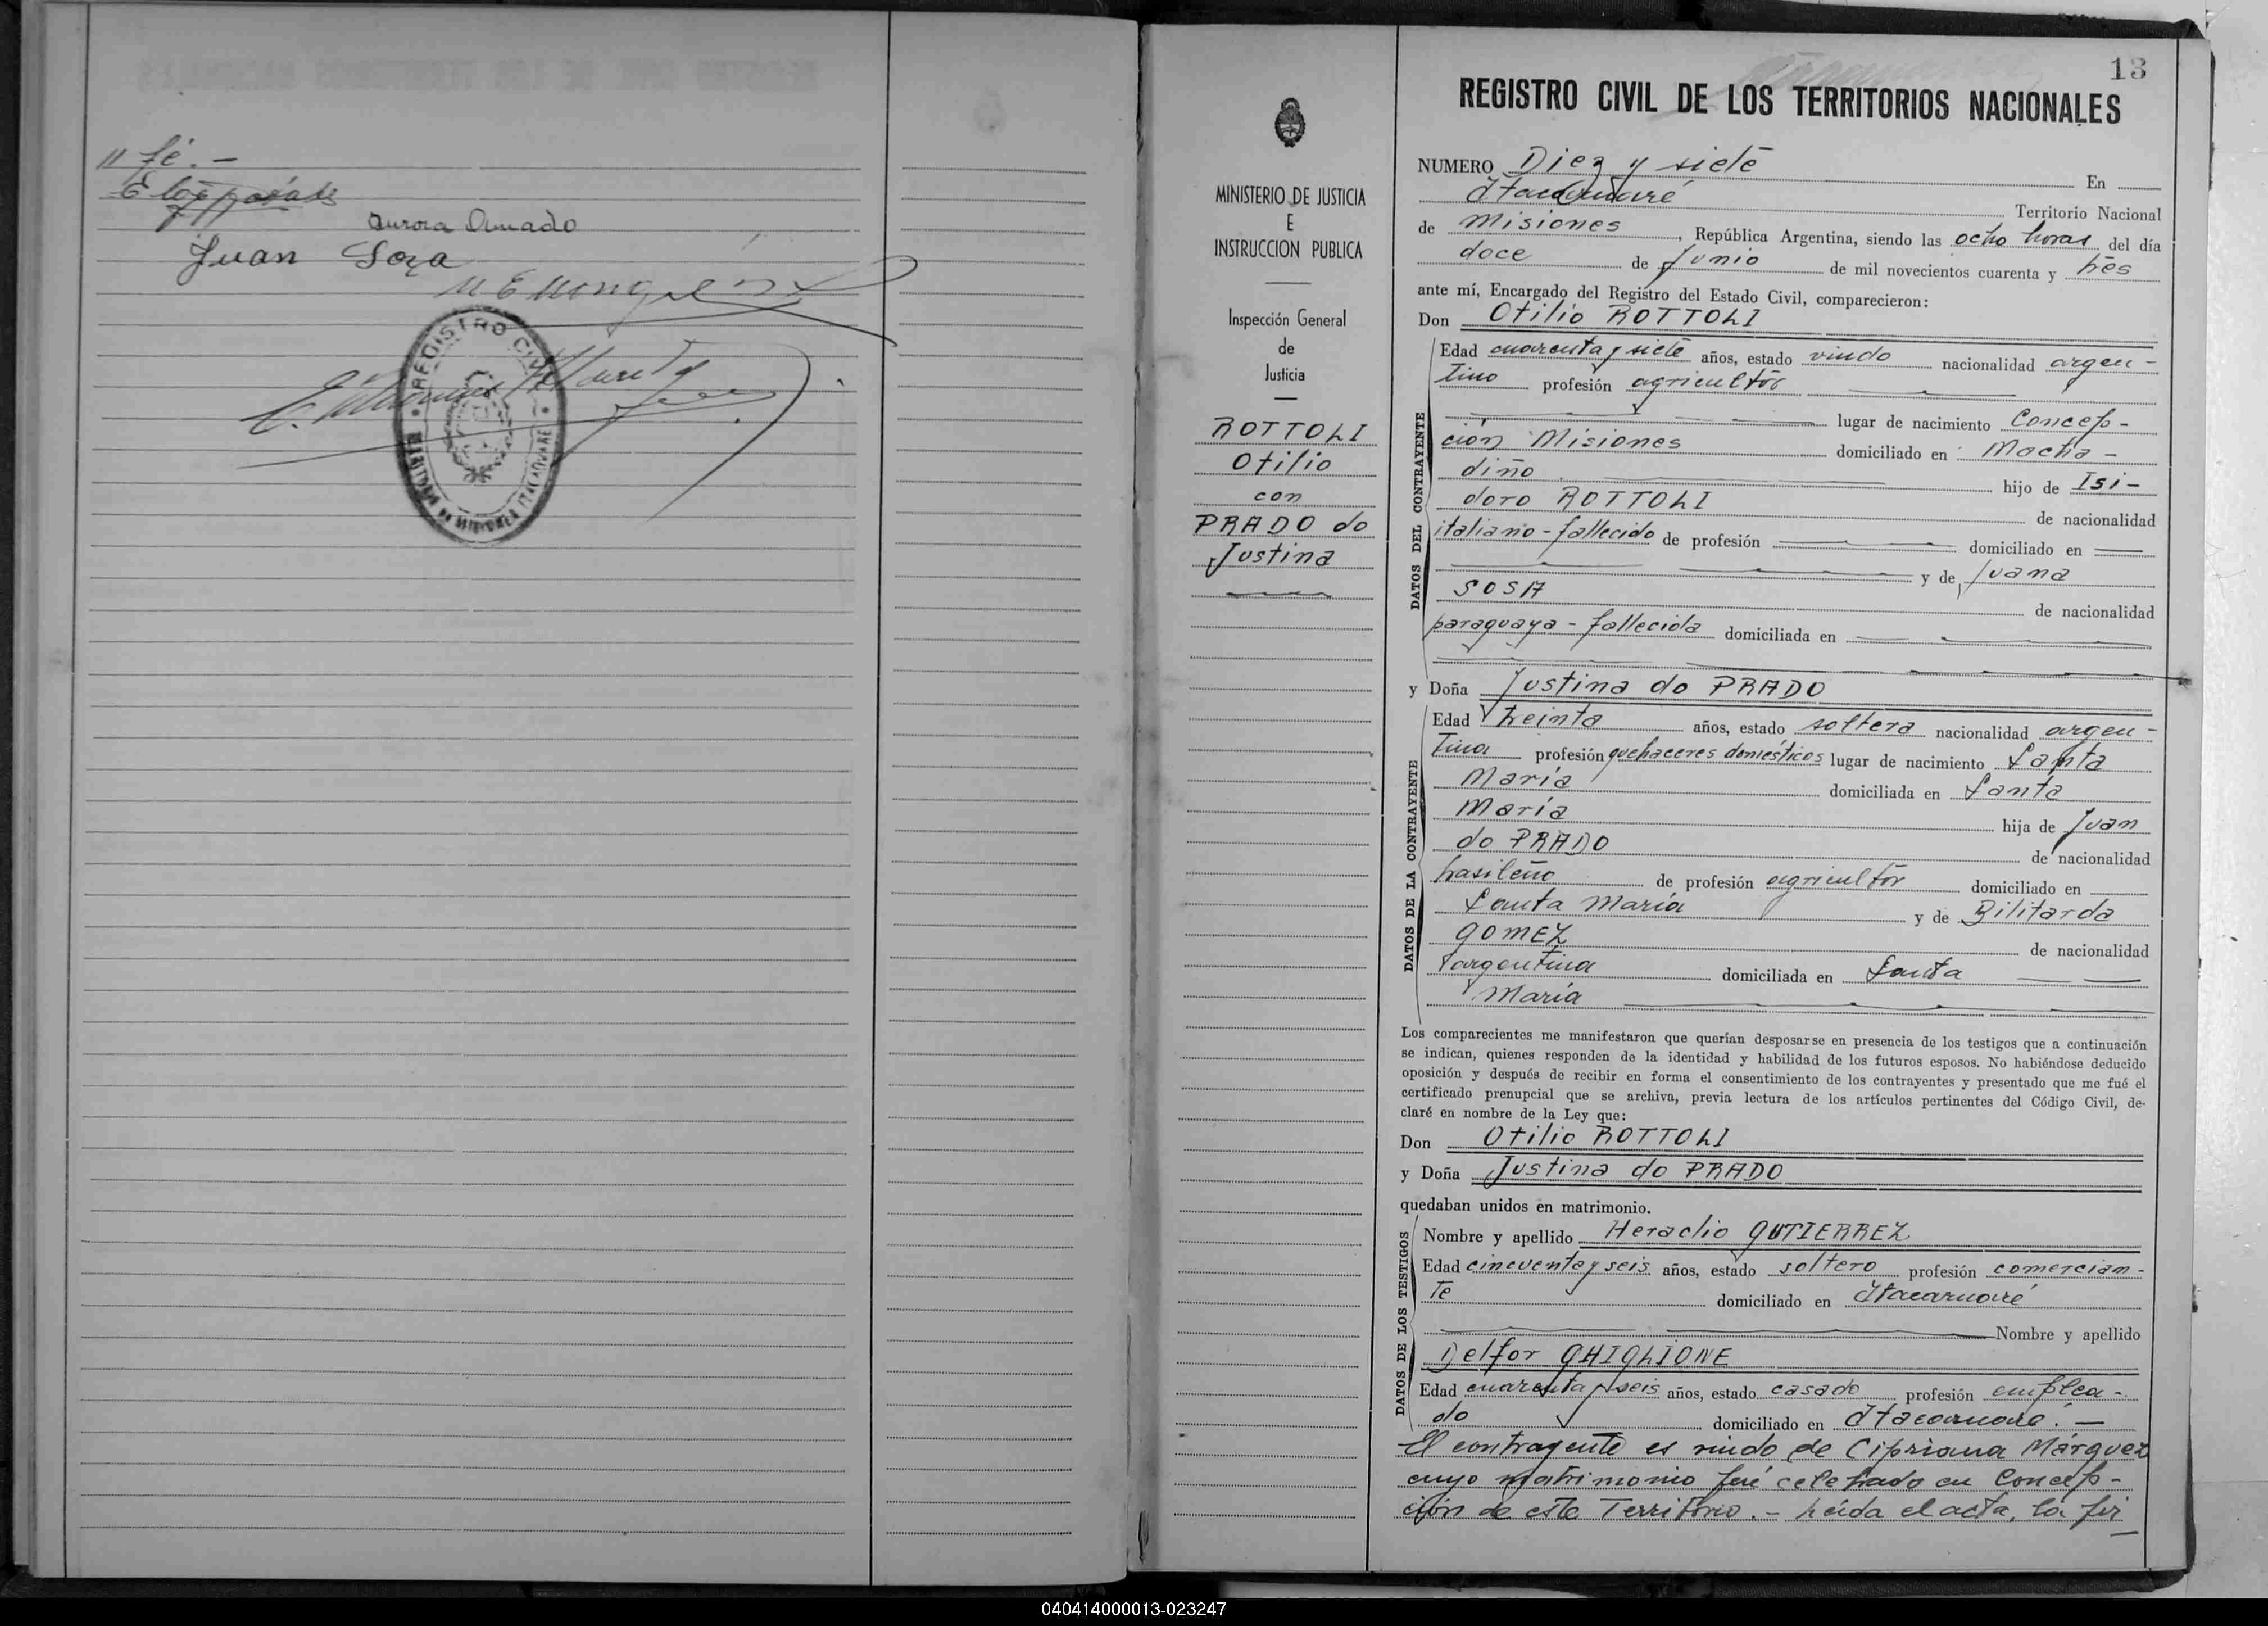 " fé.-
Aurora Amado
Juan Soza
REGISTRO CIVIL
13
REGISTRO CIVIL DE LOS TERRITORIOS NACIONALES
MINISTERIO DE JUSTICIA
E
INSTRUCCION PUBLICA
Inspección General
de
Justicia
ROTTOLI
Otilio
con
PRADO do
Justina
NUMERO Diez y siete En
Itacaruaré Territorio Nacional
de Misiones, República Argentina, siendo las ocho horas del día
doce de Junio de mil novecientos cuarenta y tres
ante mí, Encargado del Registro del Estado Civil, comparecieron:
Don Otilio ROTTOLI
DATOS DEL CONTRAYENTE
Edad cuarenta y siete años, estado viudo nacionalidad argen-
tino profesión agricultor
lugar de nacimiento Concep-
ción Misiones domiciliado en Macha-
diño hijo de Isi-
doro ROTTOLI de nacionalidad
italiano-fallecido de profesión domiciliado en
y de Juana
SOSA de nacionalidad
paraguaya-fallecida domiciliada en
y Doña Justina do PRADO
DATOS DE LA CONTRAYENTE
Edad treinta años, estado soltera nacionalidad argen-
tina profesión quehaceres domésticos lugar de nacimiento Santa
María domiciliada en Santa
María hija de Juan
do PRADO de nacionalidad
brasileño de profesión agricultor domiciliado en
Santa María y de Bilitarda
GOMEZ de nacionalidad
argentina domiciliada en Santa
María
Los comparecientes me manifestaron que querían desposarse en presencia de los testigos que a continuación
se indican, quienes responden de la identidad y habilidad de los futuros esposos. No habiéndose deducido
oposición y después de recibir en forma el consentimiento de los contrayentes y presentado que me fué el
certificado prenupcial que se archiva, previa lectura de los artículos pertinentes del Código Civil, de-
claré en nombre de la Ley que:
Don Otilio ROTTOLI
y Doña Justina do PRADO
quedaban unidos en matrimonio.
DATOS DE LOS TESTIGOS
Nombre y apellido Heraclio GUTIERREZ
Edad cincuenta y seis años, estado soltero profesión comercian-
te domiciliado en Itacaruaré
Nombre y apellido
Delfor GHIGLIONE
Edad cuarenta y seis años, estado casado profesión emplea-
do domiciliado en Itacaruaré.-
El contrayente es viudo de Cipriana Márquez
cuyo matrimonio fué celebrado en Concep-
ción de este Territorio.- Leída el acta, la fir
040414000013-023247